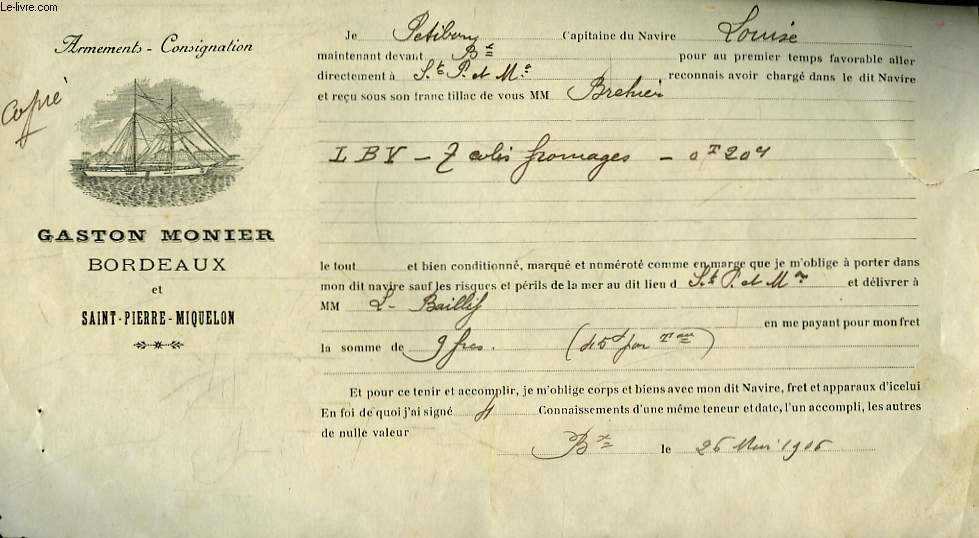 Le-livre.com
Armements - Consignation
Copié
GASTON MONIER
BORDEAUX
et
SAINT-PIERRE-MIQUELON
Je Petibon Capitaine du Navire Louise
maintenant devant Bx pour au premier temps favorable aller
directement à St. P. et Mon reconnais avoir chargé dans le dit Navire
et reçu sous son franc tillac de vous MM Brehier
L B V - 7 colis fromages - 0T 20
le tout et bien conditionné, marqué et numéroté comme en marge que je m'oblige à porter dans
mon dit navire sauf les risques et périls de la mer au dit lieu d St. P. et Mon et délivrer à
MM L. Baillif
en me payant pour mon fret
la somme de 9 frcs. par Teau)
Et pour ce tenir et accomplir, je m'oblige corps et biens avec mon dit Navire, fret et apparaux d'icelui
En foi de quoi j'ai signé 4 Connaissements d'une même teneur et date, l'un accompli, les autres
de nulle valeur
Bx le 26 1906